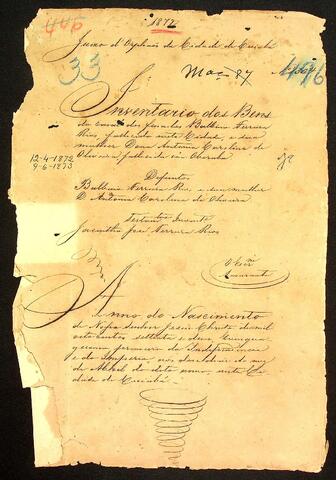 1872
Juizo d'Orphãos da Cidade de Cuiabá
33
Maç 87
Inventario dos Bens
do casal dos finados Balbino Ferreira
Rios, fallecido nesta Cidade, e sua
mulher Dona Antonia Carolina de
Oliveira fallecida em
12-4-1872
9-6-1873
Defuntos
Balbino Ferreira Rios, e sua mulher
D. Antonia Carolina de Oliveira
Inventariante
Jacintho José Ferreira Rios
O Escr.am
Anno do Nascimento
de Nosso Senhor Jesus Christo de mil
oito centos settenta e dous, quinqua
gesimo primeiro da Independencia
e do Imperio, aos doze dias do mez
de Abril do dito anno, nesta Ci
dade de Cuiabá